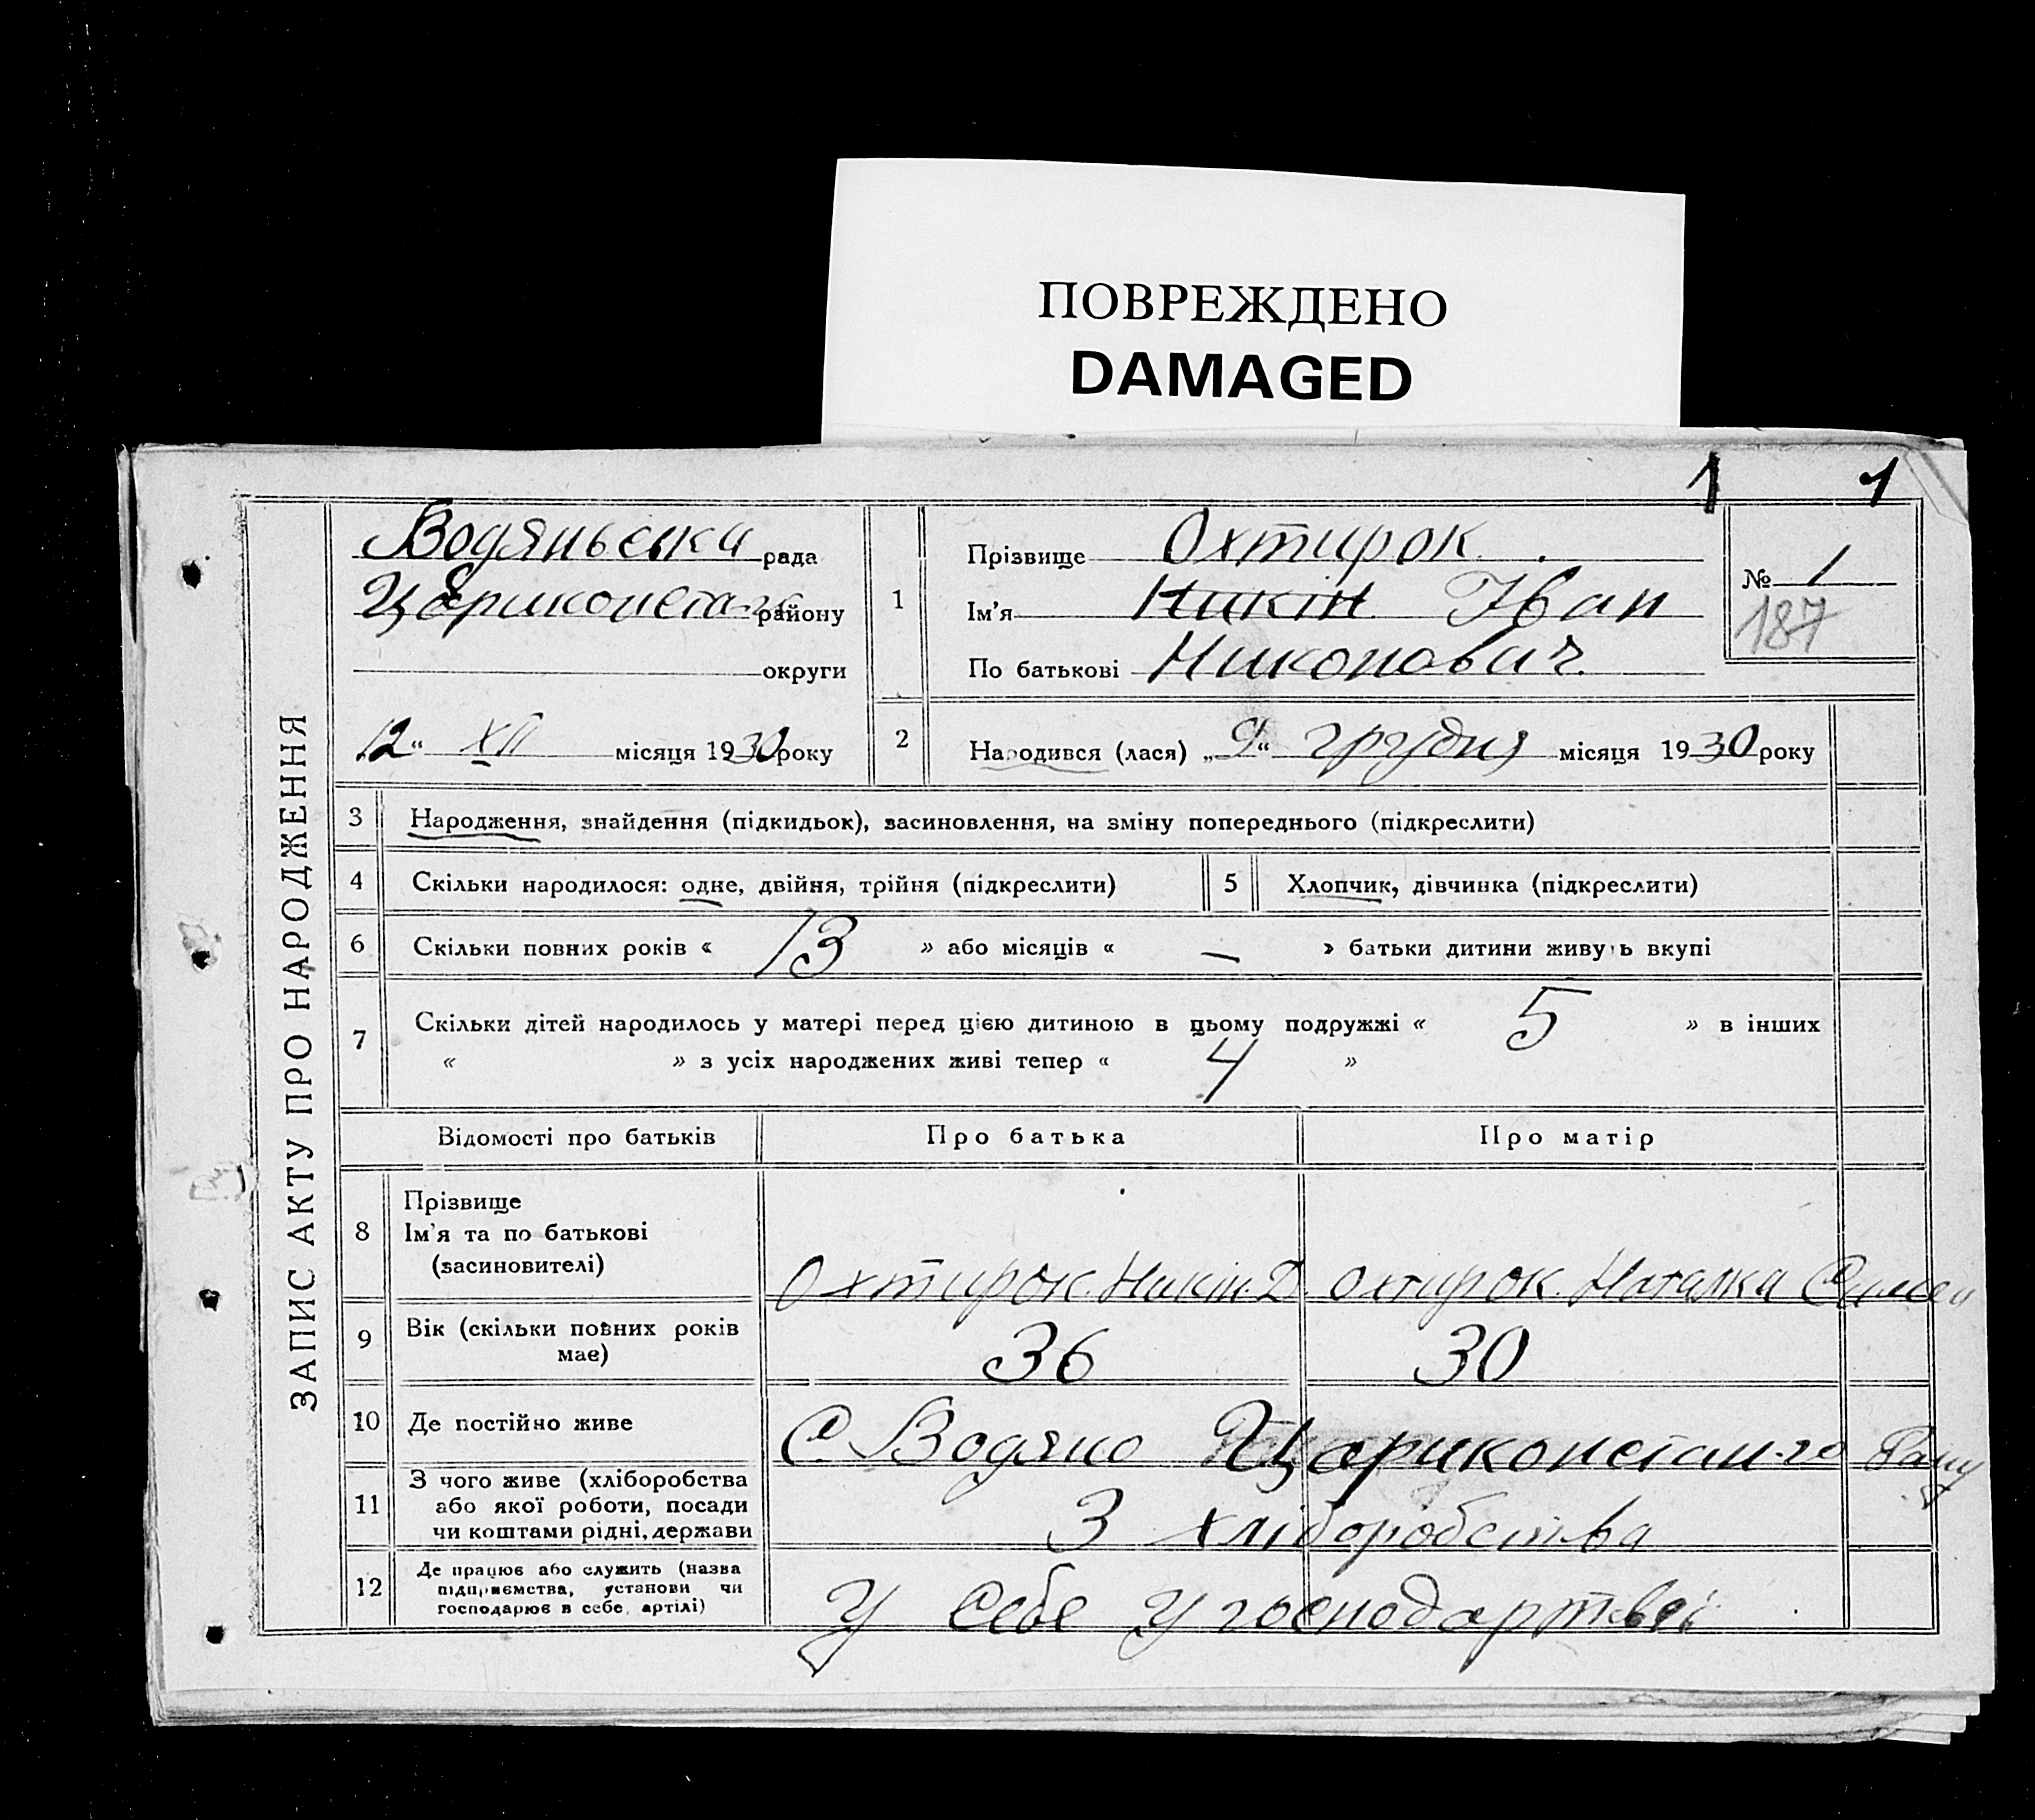 ПОВРЕЖДЕНО
DAMAGED
1 1
ЗАПИС АКТУ ПРО НАРОДЖЕННЯ
Водяньска рада
району
округи
12 “ XII місяця 1930 року
1
Прізвище Охтирок
Ім’я Никін Іван
По батькові Никонович.
№ 1
187
2
Народився (лася) „ 9 “ грудня місяця 1930 року
3 Народження, знайдення (підкидьок), засиновлення, на зміну попереднього (підкреслити)
4 Скільки народилося: одне, двійня, трійня (підкреслити)
5 Хлопчик, дівчинка (підкреслити)
6 Скільки повних років « 13 » або місяців « — » батьки дитини живуть вкупі
7 Скільки дітей народилось у матері перед цією дитиною в цьому подружжі « 5 » в інших
« » з усіх народжених живі тепер « 4 »
Відомості про батьків Про батька Про матір
8 Прізвище
Ім’я та по батькові
(засиновителі)
Охтирок. Никін. Д. Охтирок. Наталка
9 Вік (скільки повних років
має)
36 30
10 Де постійно живе
С. Водяно Царикопстан-го
11 З чого живе (хліборобства
або якої роботи, посади
чи коштами рідні, держави
З хліборобства
12 Де працює або служить (назва
підприємства, установи чи
господарює в себе, артілі)
У себе у господартвсі